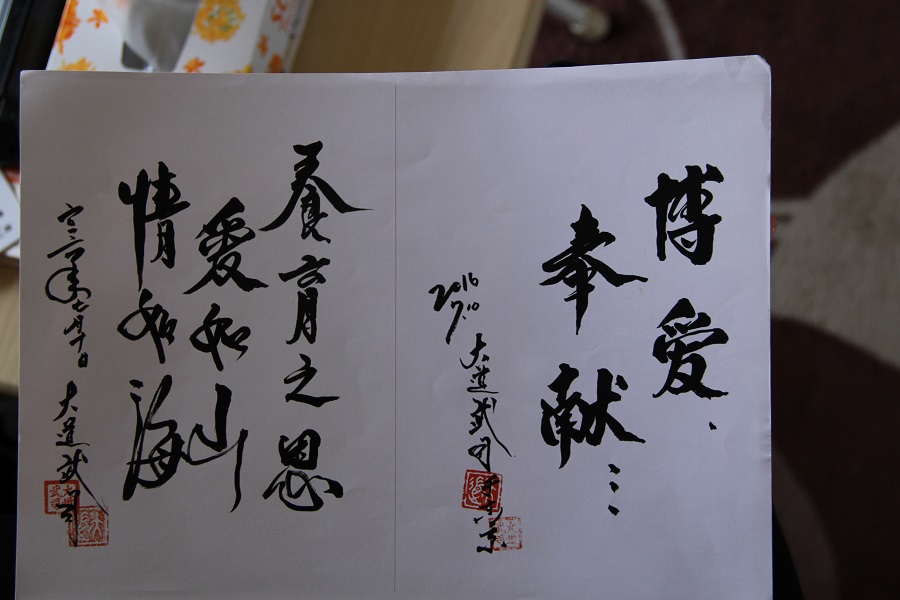 博爱、
奉献……
2016
7.10
大道武司
養育之恩
爱如山
情如海
二〇一六年七月十日 大道武司